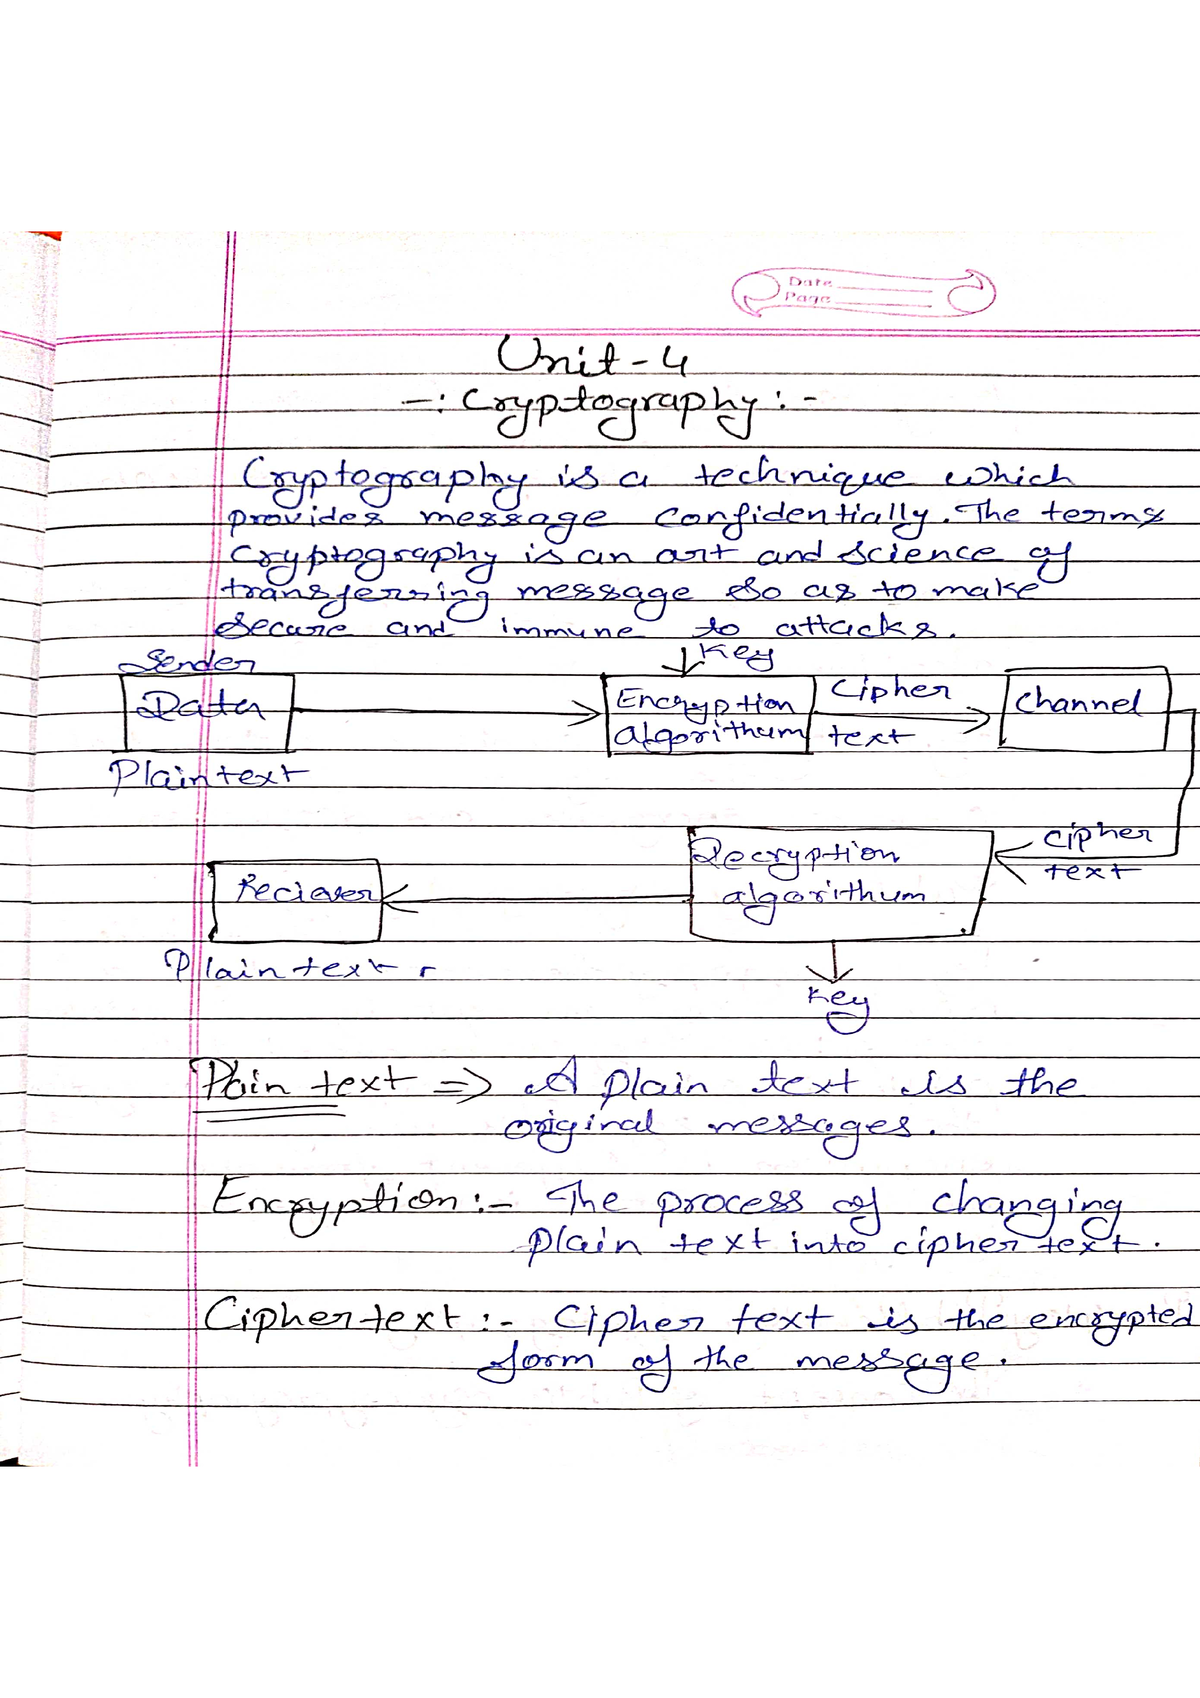 Date
Page
Unit-4
-: Cryptography :-
Cryptography is a technique which
provides message confidentially. The terms
cryptography is an art and science of
transferring message so as to make
secure and immune to attacks.
Sender
Key
Data
Encryption
algorithum
Cipher
text
Channel
Plain text
Cipher
text
Decryption
algorithum
Reciever
Plain text
Key
Plain text => A plain text is the
original messages.
Encryption :- The process of changing
plain text into cipher text.
Cipher text :- Cipher text is the encrypted
form of the message.